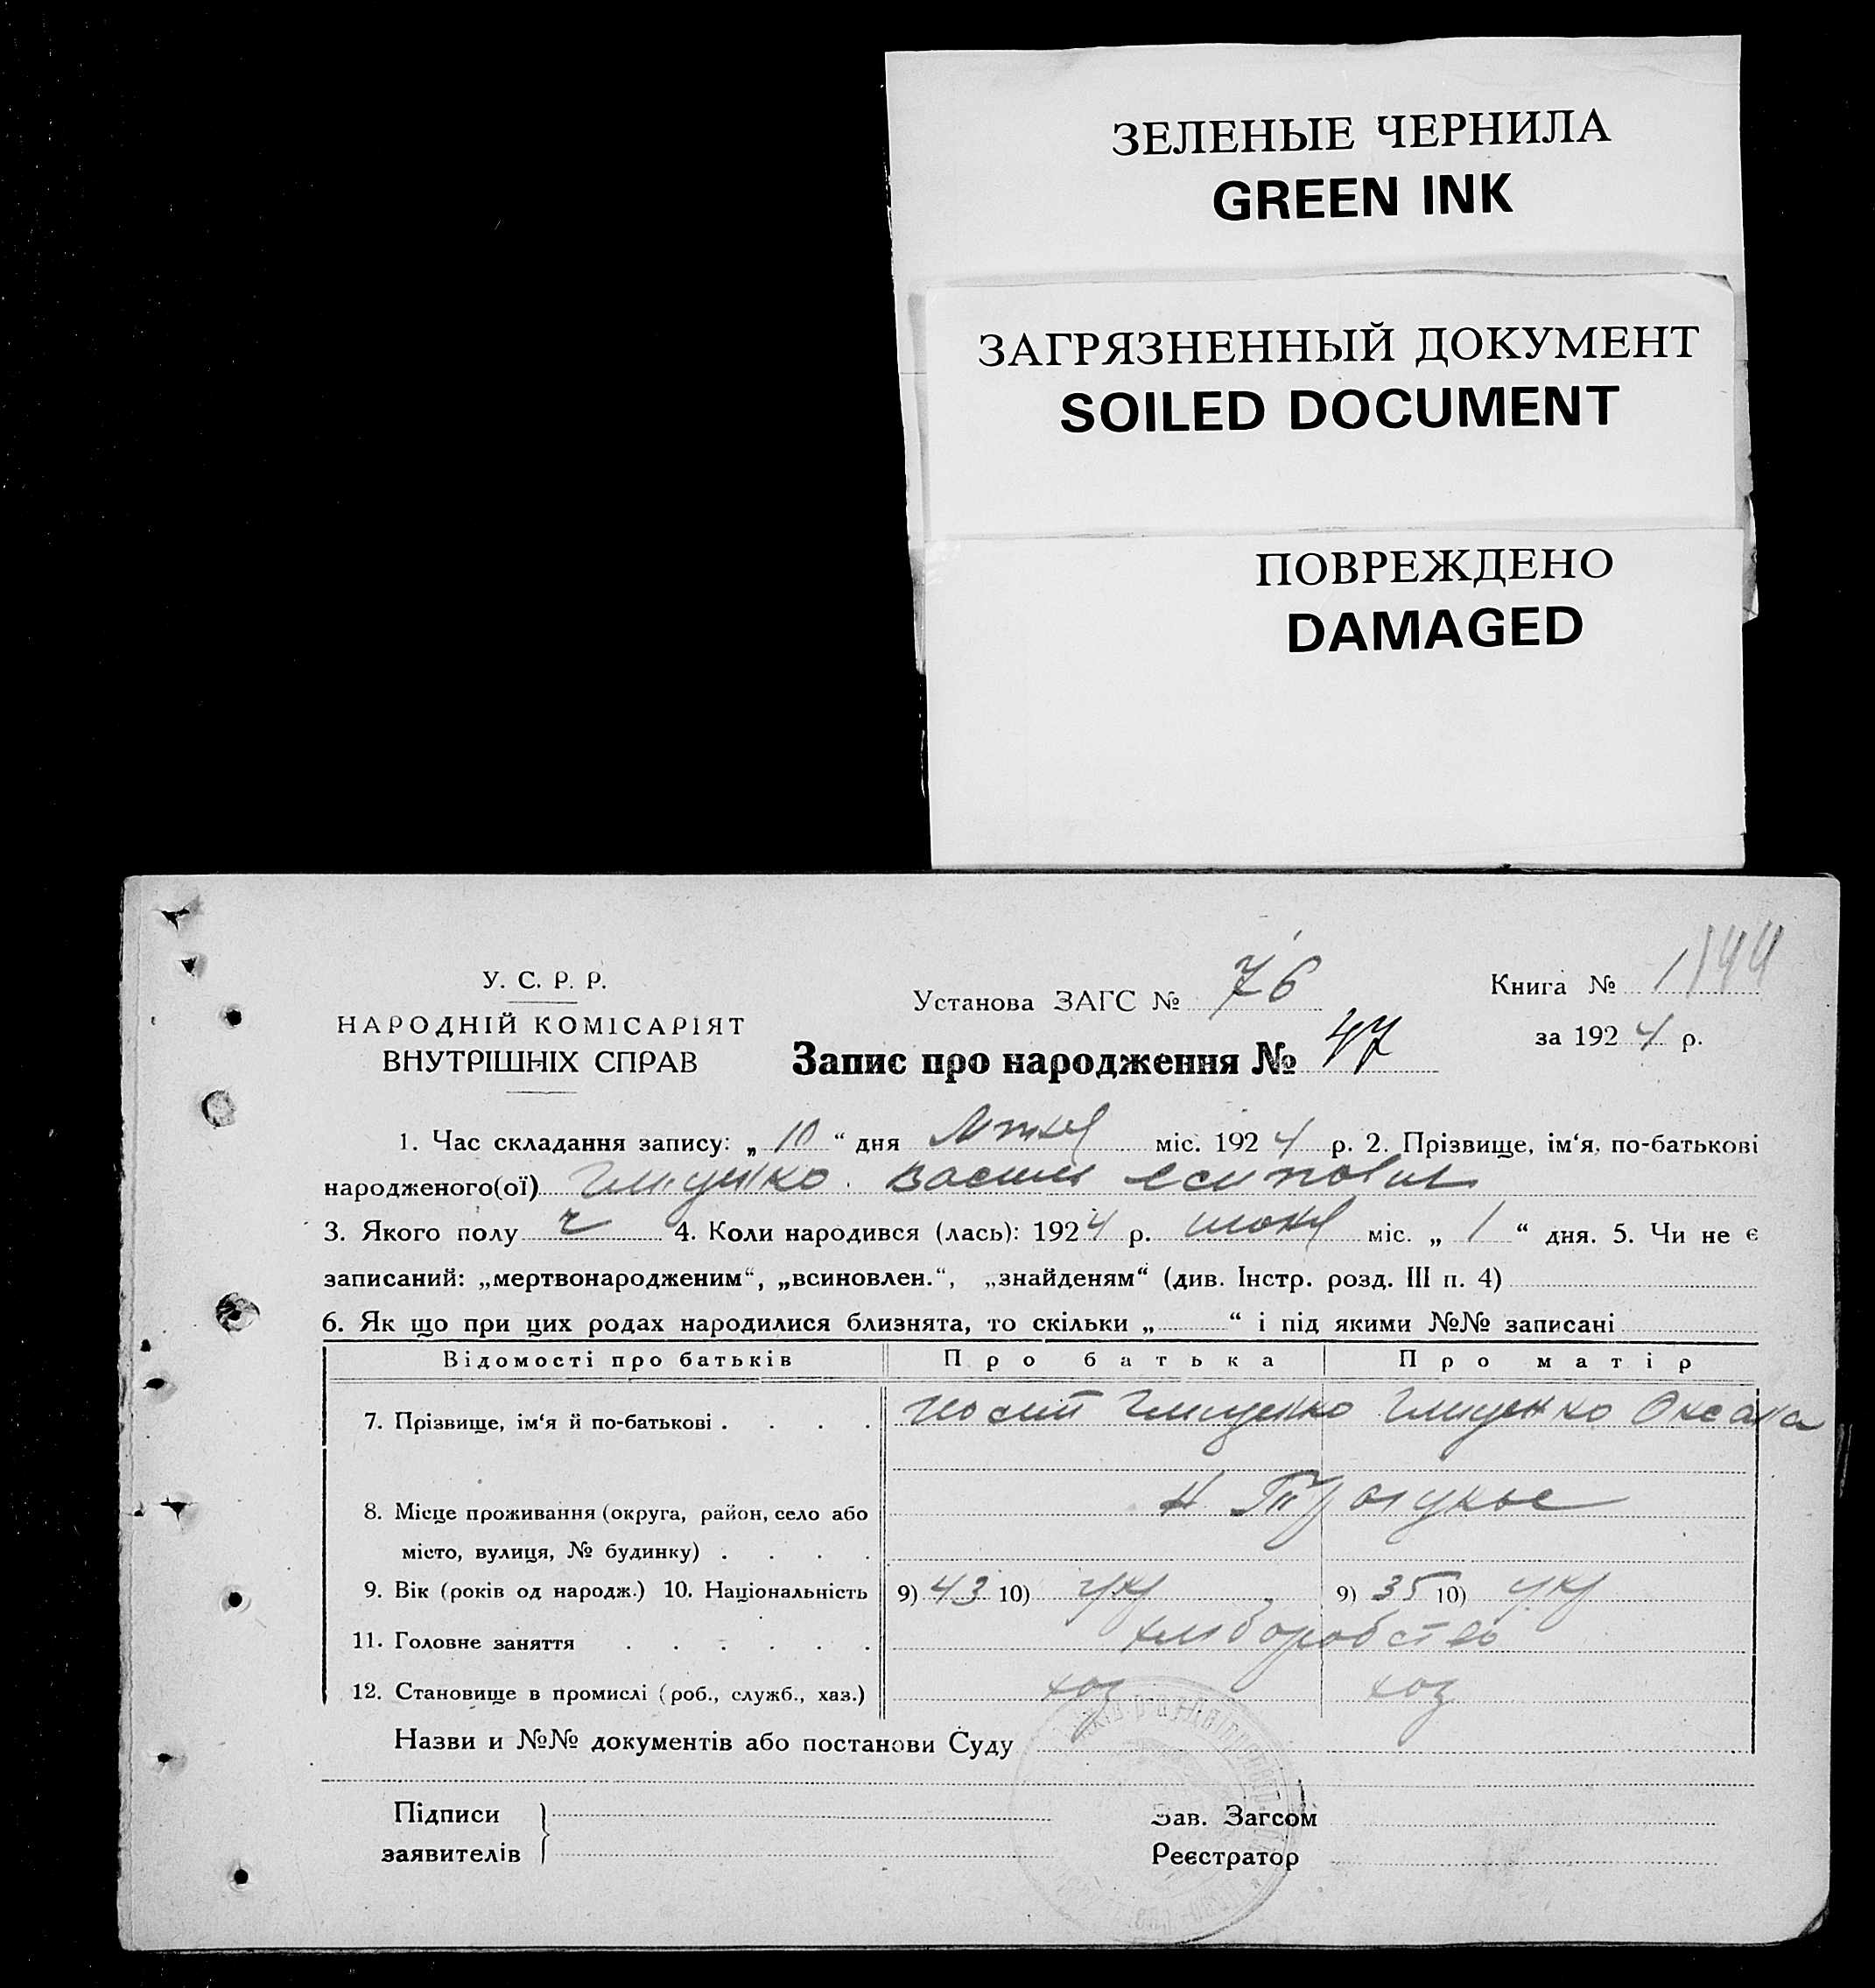 ЗЕЛЕНЫЕ ЧЕРНИЛА
GREEN INK
ЗАГРЯЗНЕННЫЙ ДОКУМЕНТ
SOILED DOCUMENT
ПОВРЕЖДЕНО
DAMAGED
У. С. Р. Р.
НАРОДНІЙ КОМІСАРІЯТ
ВНУТРІШНІХ СПРАВ
Установа ЗАГС № 76
Запис про народження № 47
Книга № 1
за 1924 р.
1. Час складання запису: „ 10 “ дня міс. 1924 р. 2. Прізвище, ім‘я, по-батькові
народженого(ої)
3. Якого полу ч 4. Коли народився (лась): 1924 р. міс. „ 1 “ дня. 5. Чи не є
записаний: „мертвонародженим“, „всиновлен.“, „знайденям“ (див. Інстр. розд. III п. 4)
6. Як що при цих родах народилися близнята, то скільки „ “ і під якими №№ записані
Відомості про батьків Про батька Про матір
7. Прізвище, ім‘я й по-батькові . . . . Оксана
8. Місце проживання (округа, район, село або
місто, вулиця, № будинку) . . . .
9. Вік (років од народж.) 10. Національність 9) 43 10) укр 9) 35 10) укр
11. Головне заняття . . . . . . хліборобство
12. Становище в промислі (роб., служб., хаз.) хоз хоз
Назви и №№ документів або постанови Суду
Підписи
заявителів
Зав. Загсом
Реєстратор